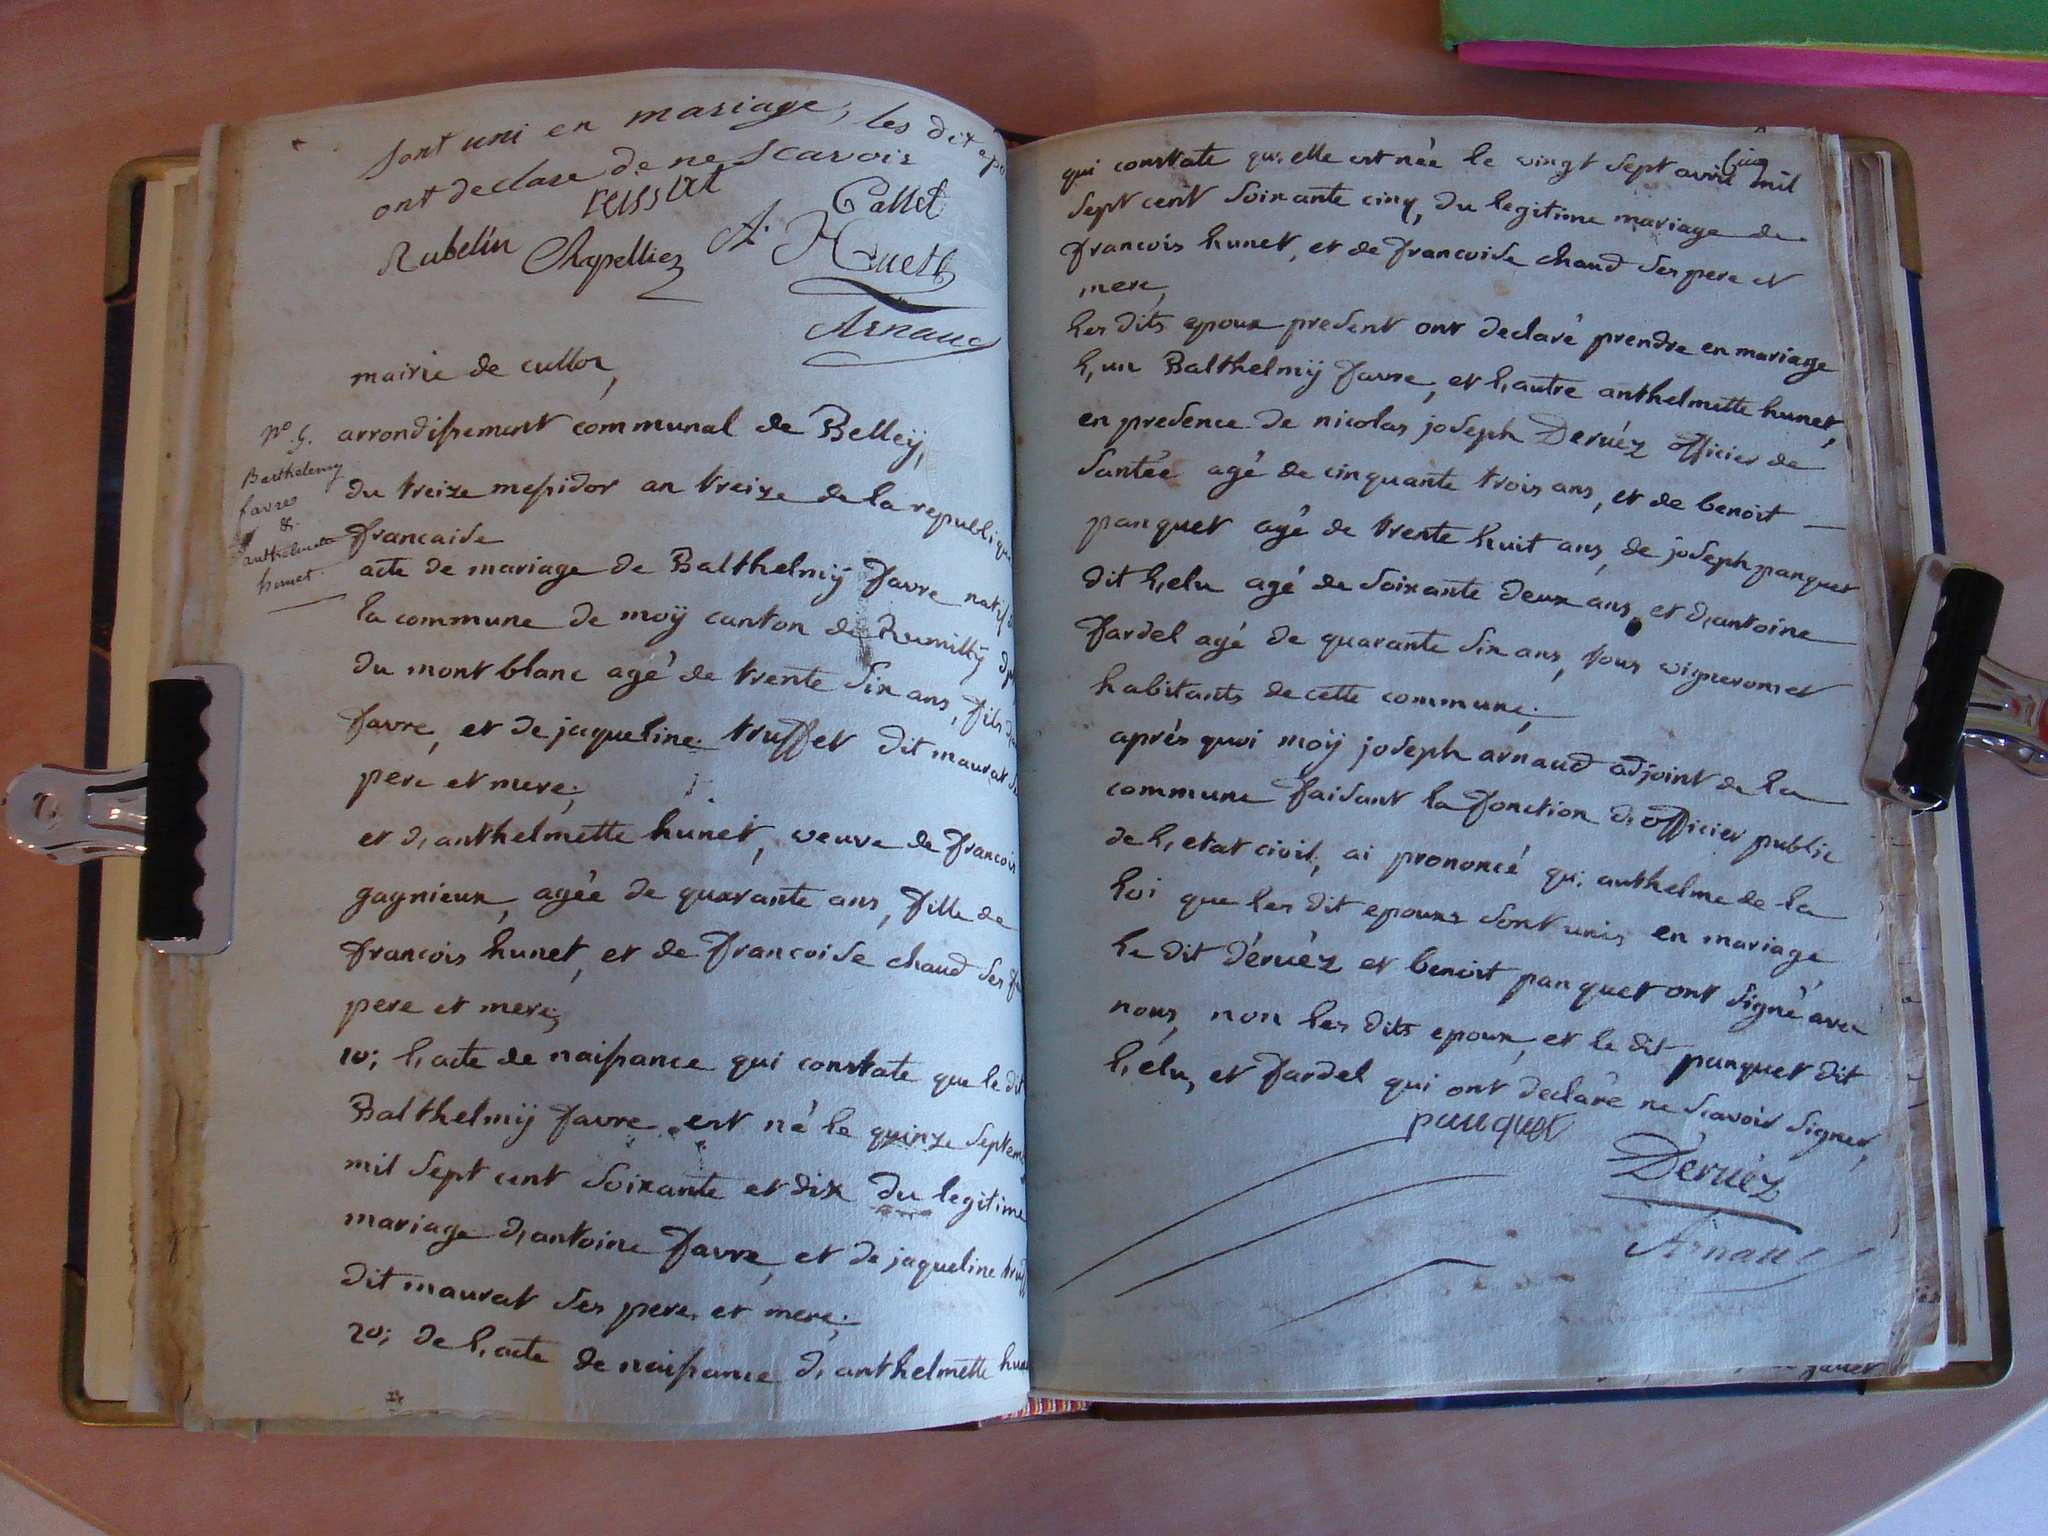 sont uni en mariage, les dit epo
ont declare de ne scavoir
Callet
Rubelin Chapellier A. Huet
Arnaud
mairie de culloz,
No. 9.
Barthelemy
favre
&
anthelmette
hunet.
arrondissement communal de Belleÿ,
du treize messidor an treize de la republique
francaise
acte de mariage de Balthelmÿ favre natif de
la commune de moÿ canton de Rumillÿ
du mont blanc agé de trente six ans, fils
favre, et de jaqueline truffet dit maurat
pere et mere;
et d,anthelmette hunet, veuve de francois
gagnieux, agée de quarante ans, fille de
francois hunet, et de francoise chaud ses
pere et mere;
1o; l,acte de naissance qui constate que le dit
Balthelmÿ favre est né le quinze septem
mil sept cent soixante et dix du legitime
mariage d,antoine favre, et de jaqueline truff
dit maurat ses pere et mere;
2o; de l,acte de naissance d,anthelmette hu
qui constate qu,elle est née le vingt sept avril mil
sept cent soixante cinq, du legitime mariage de
francois hunet, et de francoise chaud ses pere et
mere,
les dits epoux present ont declaré prendre en mariage
l,un Balthelmÿ favre, et l,autre anthelmette hunet,
en presence de nicolas joseph Deruéz officier de
santée agé de cinquante trois ans, et de benoit
panquet agé de trente huit ans, de joseph panquet
dit l,elu agé de soixante deux ans, et d,antoine
fardel agé de quarante six ans, tous vigneron et
habitants de cette commune;
aprés quoi moÿ joseph arnaud adjoint de la
commune faisant la fonction d,officier public
de l,etat civil, ai prononcé qu, anthelme de la
loi que les dit epoux sont unis en mariage
le dit Déruéz et benoit panquet ont signé avec
nous, non les dits epoux, et le dit panquet dit
l,elu, et fardel qui ont declaré ne scavoir signer,
panquet
Deruéz
Arnaud